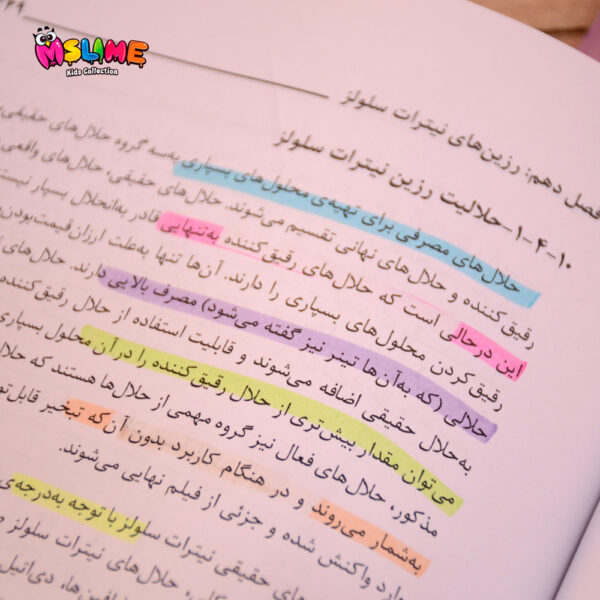 ۴۹
MSLIME
Kids Collection
فصل دهم: رزین‌های نیترات سلولز
۱۰-۴-۱- حلالیت رزین نیترات سلولز
حلال‌های مصرفی برای تهیه‌ی محلول‌های بسپاری به‌سه گروه حلال‌های حقیقی،
رقیق‌کننده و حلال‌های نهانی تقسیم می‌شوند. حلال‌های حقیقی، حلال‌های واقعی
این درحالی است که حلال‌های رقیق کننده به‌تنهایی قادر به‌انحلال بسپار نیستند
رقیق‌کردن محلول‌های بسپاری را دارند. آن‌ها تنها به‌علت ارزان‌قیمت‌بودن،
حلالی (که به‌آن‌ها تینر نیز گفته می‌شود) مصرف بالایی دارند. حلال‌های
به‌حلال حقیقی اضافه می‌شوند و قابلیت استفاده از حلال رقیق‌کننده
می‌توان مقدار بیش‌تری از حلال رقیق کننده را درآن محلول بسپاری
مذکور، حلال‌های فعال نیز گروه مهمی از حلال‌ها هستند که حلال
به‌شمار می‌روند و در هنگام کاربرد بدون آن‌که تبخیر
وارد واکنش شده و جزئی از فیلم نهایی می‌شوند.
های حقیقی نیترات سلولز با توجه به‌درجه‌ی
حلال‌های نیترات سلولز